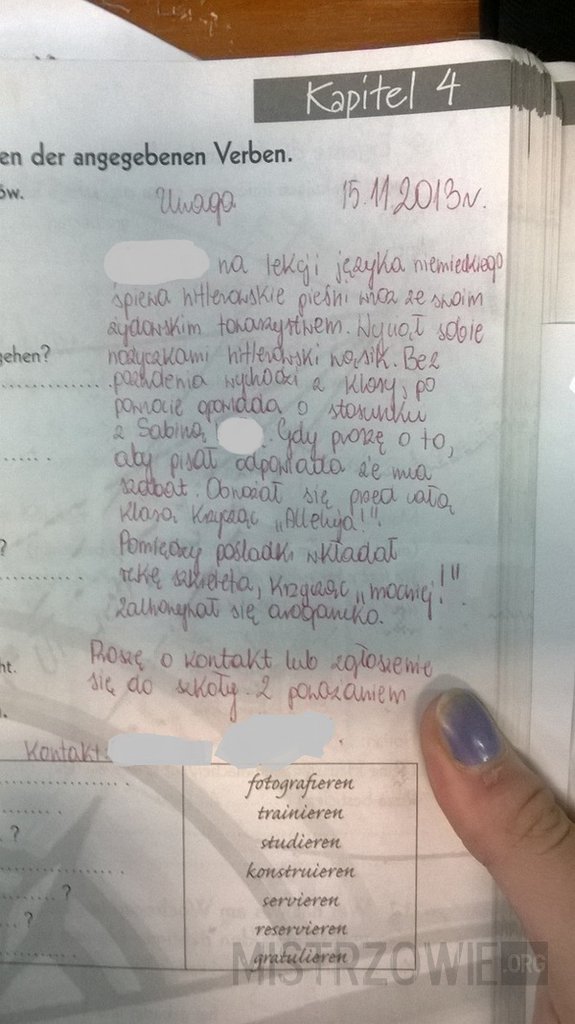 Kapitel 4
en der angegebenen Verben.
ów.
Uwaga 15.11.2013r.
na lekcji języka niemieckiego
śpiewa hitlerowskie pieśni wraz ze swoim
żydowskim towarzystwem. Wyciął sobie
gehen?
nożyczkami hitlerowski wąsik. Bez
pozwolenia wychodzi z klasy, po
powrocie opowiada o stosunku
z Sabiną . Gdy proszę o to,
aby pisał odpowiada że ma
szabat. Obnażał się przed całą
klasą krzycząc „Alleluja!".
?
Pomiędzy pośladki wkładał
rękę szkieleta, krzycząc „mocniej!".
Zachowywał się arogancko.
ht.
Proszę o kontakt lub zgłoszenie
się do szkoły. Z poważaniem
Kontakt
fotografieren
trainieren
?
studieren
konstruieren
?
servieren
?
reservieren
gratulieren
MISTRZOWIE.ORG